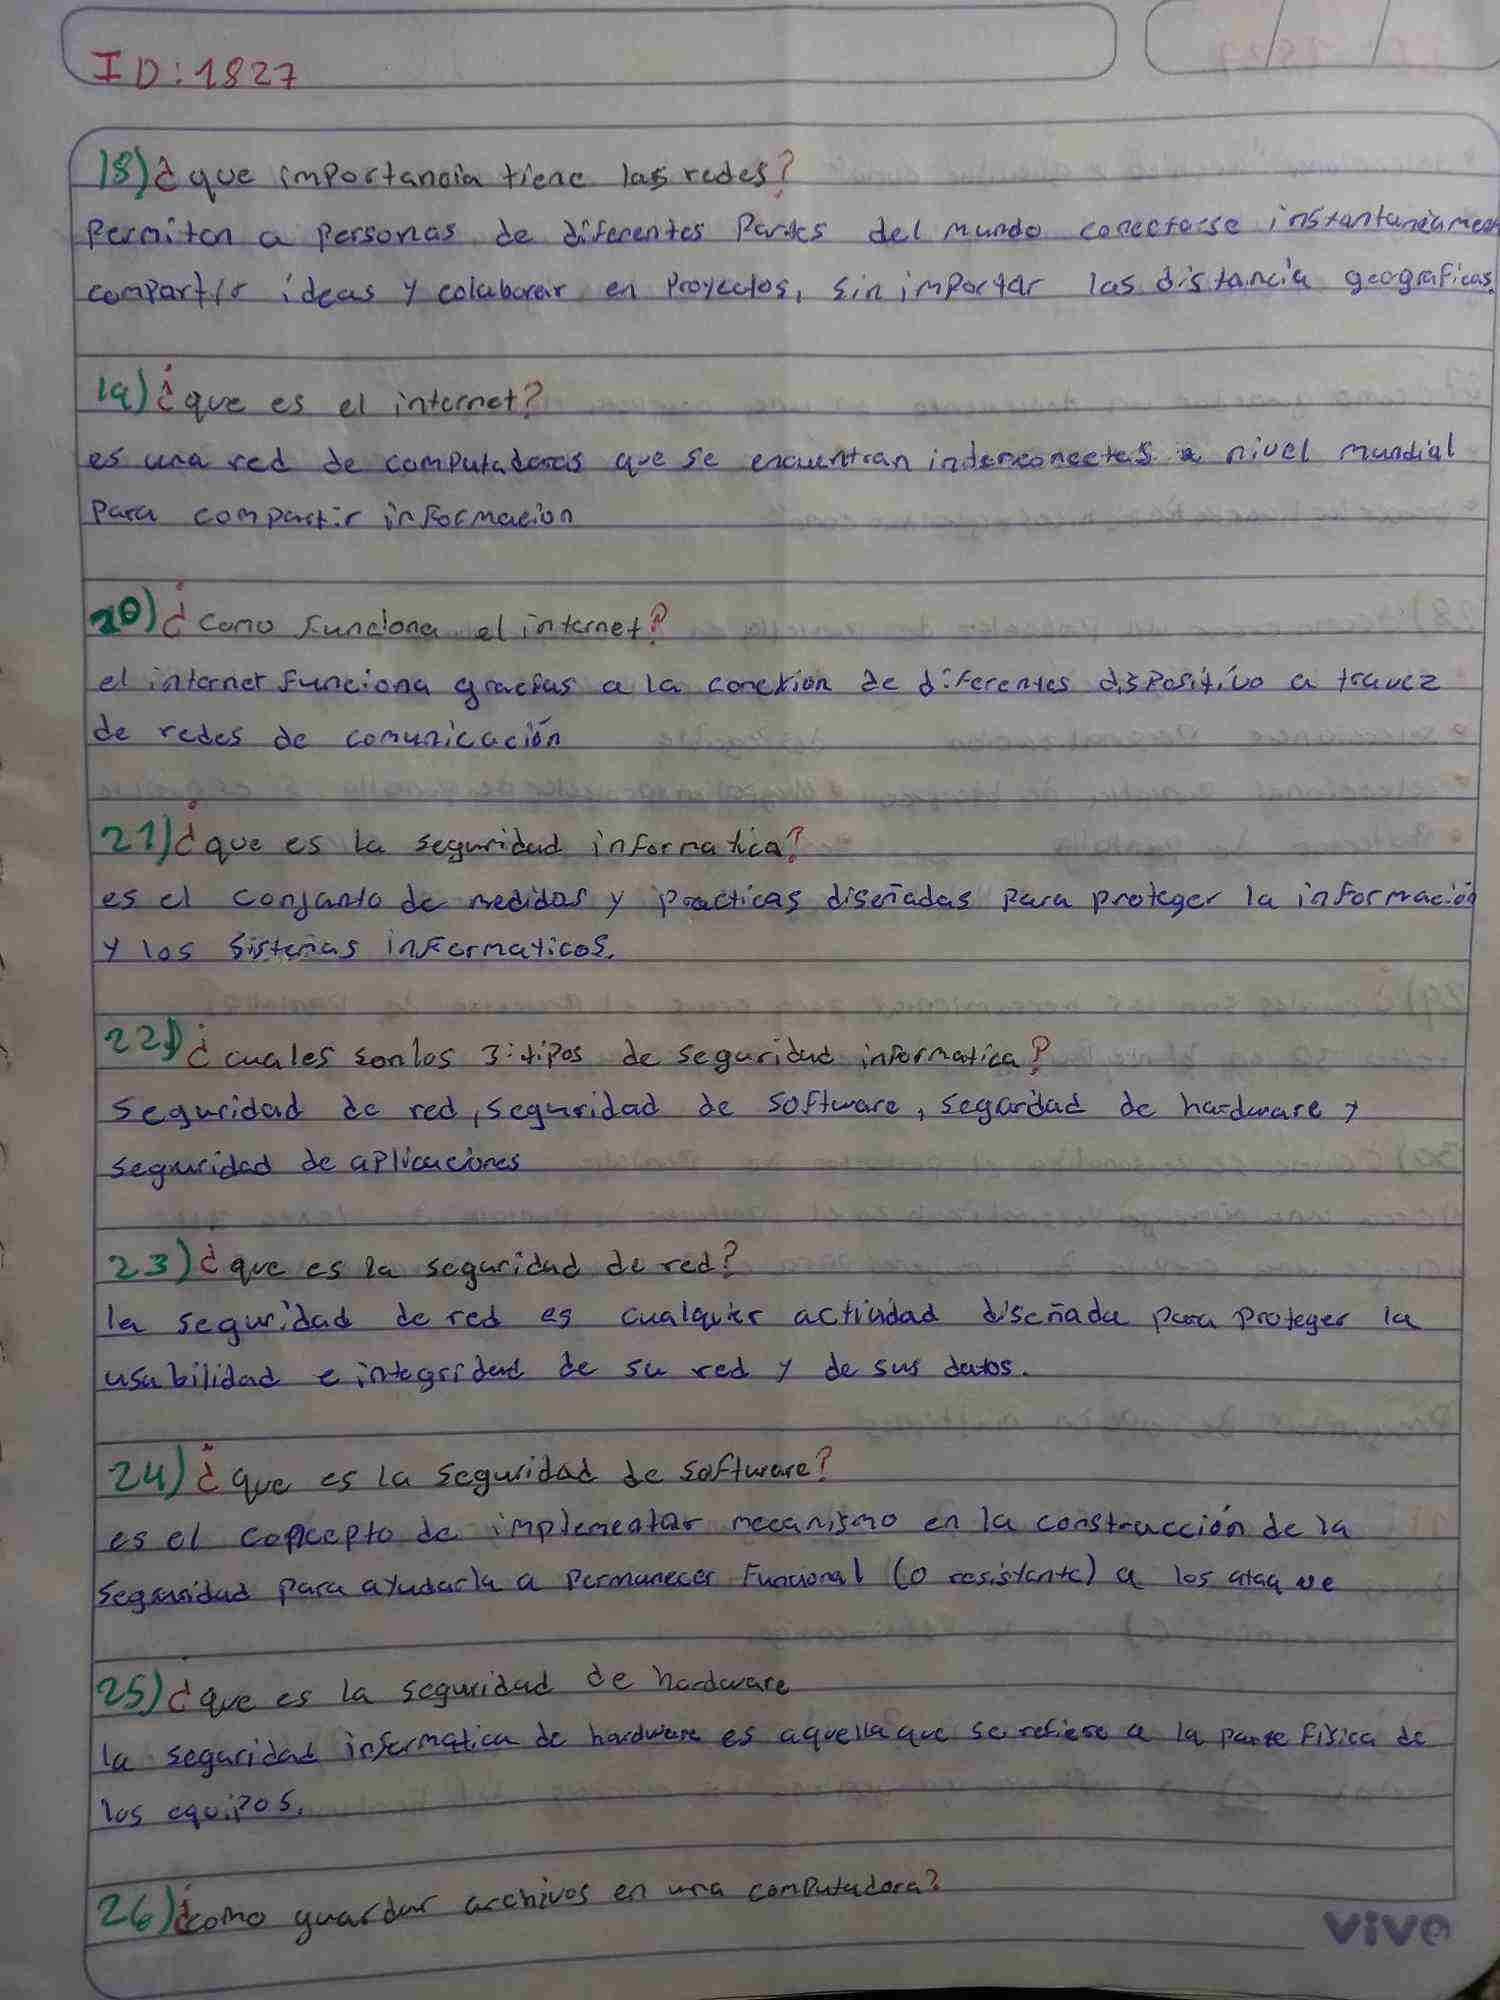 ID: 1827
18) ¿que importancia tiene las redes?
Permiten a personas de diferentes Partes del mundo conectarse instantaneamen
compartir ideas y colaborar en Proyectos, sin importar las distancia geograficas.
19) ¿que es el internet?
es una red de computadoras que se encuentran interconectas a nivel mundial
Para compartir informacion
20) ¿como funciona el internet?
el internet funciona gracias a la conexion de diferentes dispositivo a travez
de redes de comunicación
21) ¿que es la seguridad informatica?
es el conjanto de medidas y practicas diseñadas para proteger la información
y los sistemas informaticos.
22) ¿cuales son los 3 tipos de seguridad informatica?
seguridad de red, seguridad de software, segardad de hardware y
seguridad de aplicaciones
23) ¿que es la seguridad de red?
la seguridad de red es cualquier actividad diseñada para proteger la
usabilidad e integridad de su red y de sus datos.
24) ¿que es la seguridad de software?
es el concepto de implementar mecanismo en la construcción de la
seguridad para ayudarla a permanecer funcional (o resistente) a los ataque
25) ¿que es la seguridad de hardware
la seguridad informatica de hardware es aquella que se refiere a la parte fisica de
los equipos.
26) ¿como guardar archivos en una computadora?
vivo